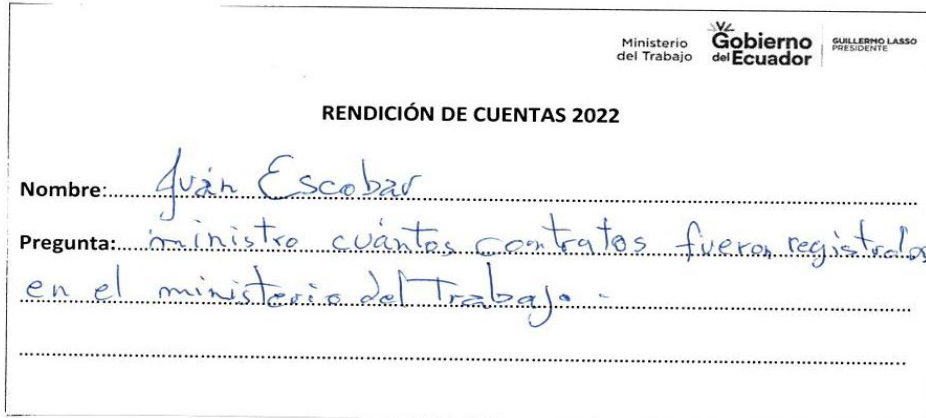 Ministerio
del Trabajo
Gobierno
del Ecuador
GUILLERMO LASSO
PRESIDENTE
RENDICIÓN DE CUENTAS 2022
Nombre: Iván Escobar
Pregunta: ministro cuántos contratos fueron registrados
en el ministerio del Trabajo.